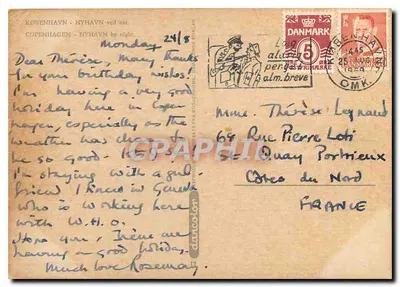 KØBENHAVN - NYHAVN ved nat.
COPENHAGEN - NYHAVN by night.
Monday 24/8
Dear Thérèse, Many thanks
for your birthday wishes!
I'm having a very good
holiday here in Copen
hagen, especially as the
weather has
be so good. I'm
I'm staying with a girl-
friend I knew in Geneva
who is working here
with W.H.O.
Hope you, Irène are
having a good holiday.
Much love Rosemary
dancolor
Læg
aldrig
penge i
alm. breve
DANMARK
5
DANMARK
KØBENHAVN
OMK.
Mme. Thérèse Legnard
68 Rue Pierre Loti
St Quay Portrieux
Côtes du Nord
FRANCE
CPARAMA